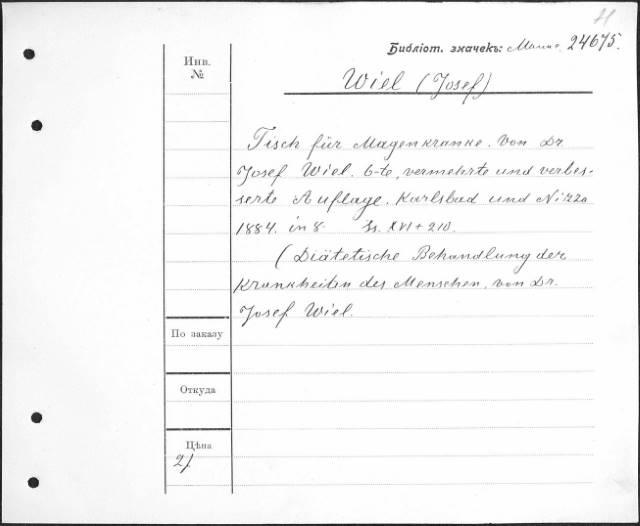 Библіот. значекъ: 24675.
Инв.
№
Wiel (Josef)
Tisch für Magenkranke. Von Dr.
Josef Wiel. 6-te, vermehrte und verbes-
serte Auflage. Karlsbad und Nizza
1884. in 8. Ss. XVI + 210.
(Diätetische Behandlung der
Krankheiten des Menschen. von Dr.
Josef Wiel.
По заказу
Откуда
Цѣна